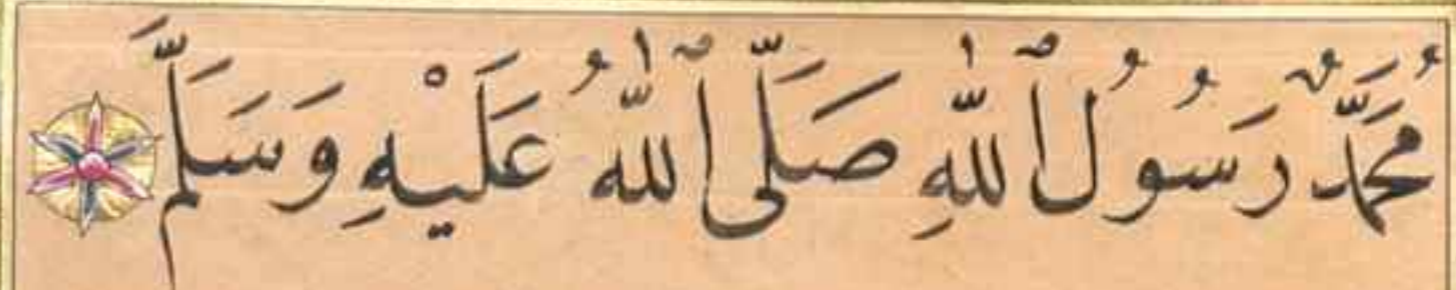 مُحَمَّدٌ رَسُولُ ٱللّٰهِ صَلَّى ٱللّٰهُ عَلَيْهِ وَسَلَّمَ